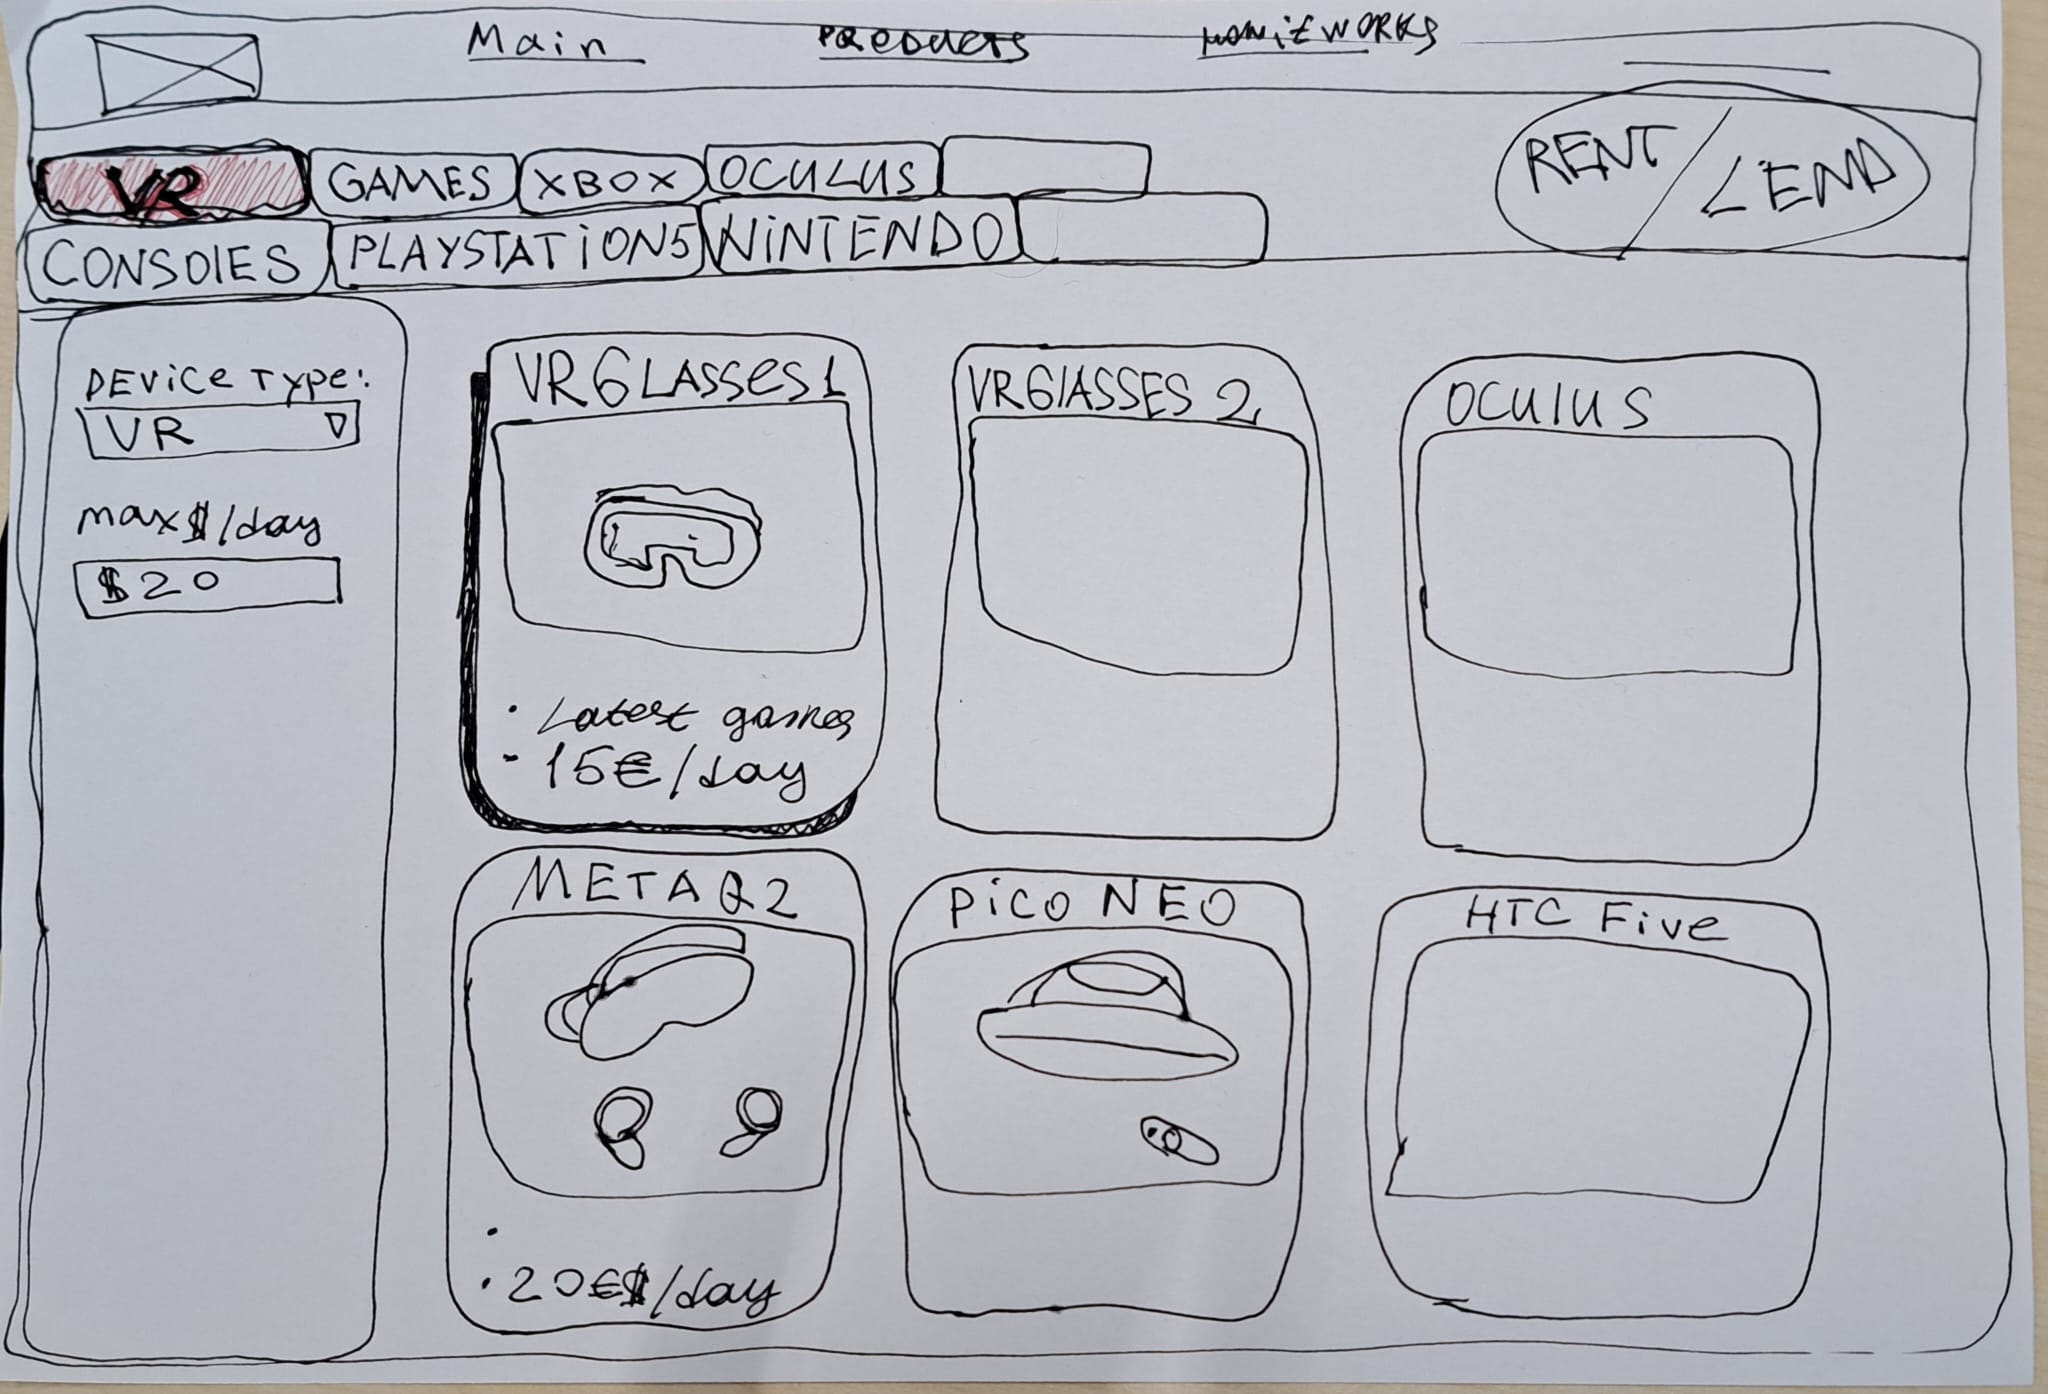 Main PRODUCTS HOW iT WORKS
VR GAMES XBOX OCULUS
RENT / LEND
CONSOlES PLAYSTATiON5 NiNTENDO
DEViCe Type:
VR
max$/day
$20
VR GLASSes 1
• Latest games
- 15€/day
VR GlASSES 2
OCUlUS
META Q2
•
• 20€$/day
PiCO NEO
HTC Five